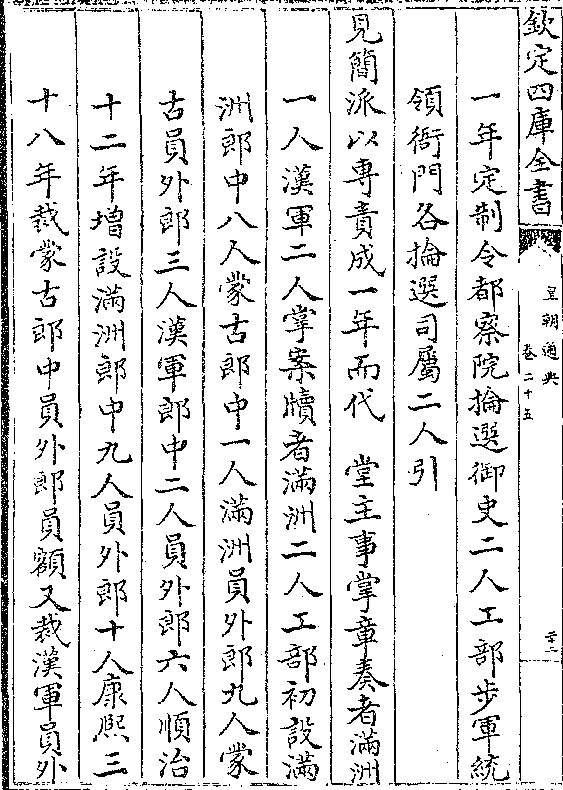 欽定四庫全書
皇朝通典
卷二十五
一年定制令都察院掄選御史二人工部步軍統
領衙門各掄選司屬二人引
見簡派以專責成一年而代　堂主事掌章奏者滿洲
一人漢軍二人掌案牘者滿洲二人工部初設滿
洲郎中八人蒙古郎中一人滿洲員外郎九人蒙
古員外郎三人漢軍郎中二人員外郎六人順治
十二年增設滿洲郎中九人員外郎十人康熙三
十八年裁蒙古郎中員外郎員額又裁漢軍員外